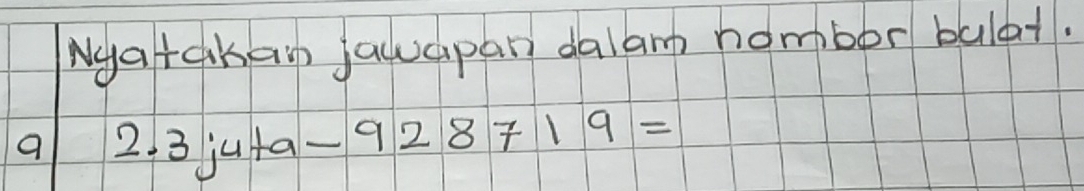 Nyatakan jawapan dalam nombor bulat.
9 2.3 juta - 928719 =